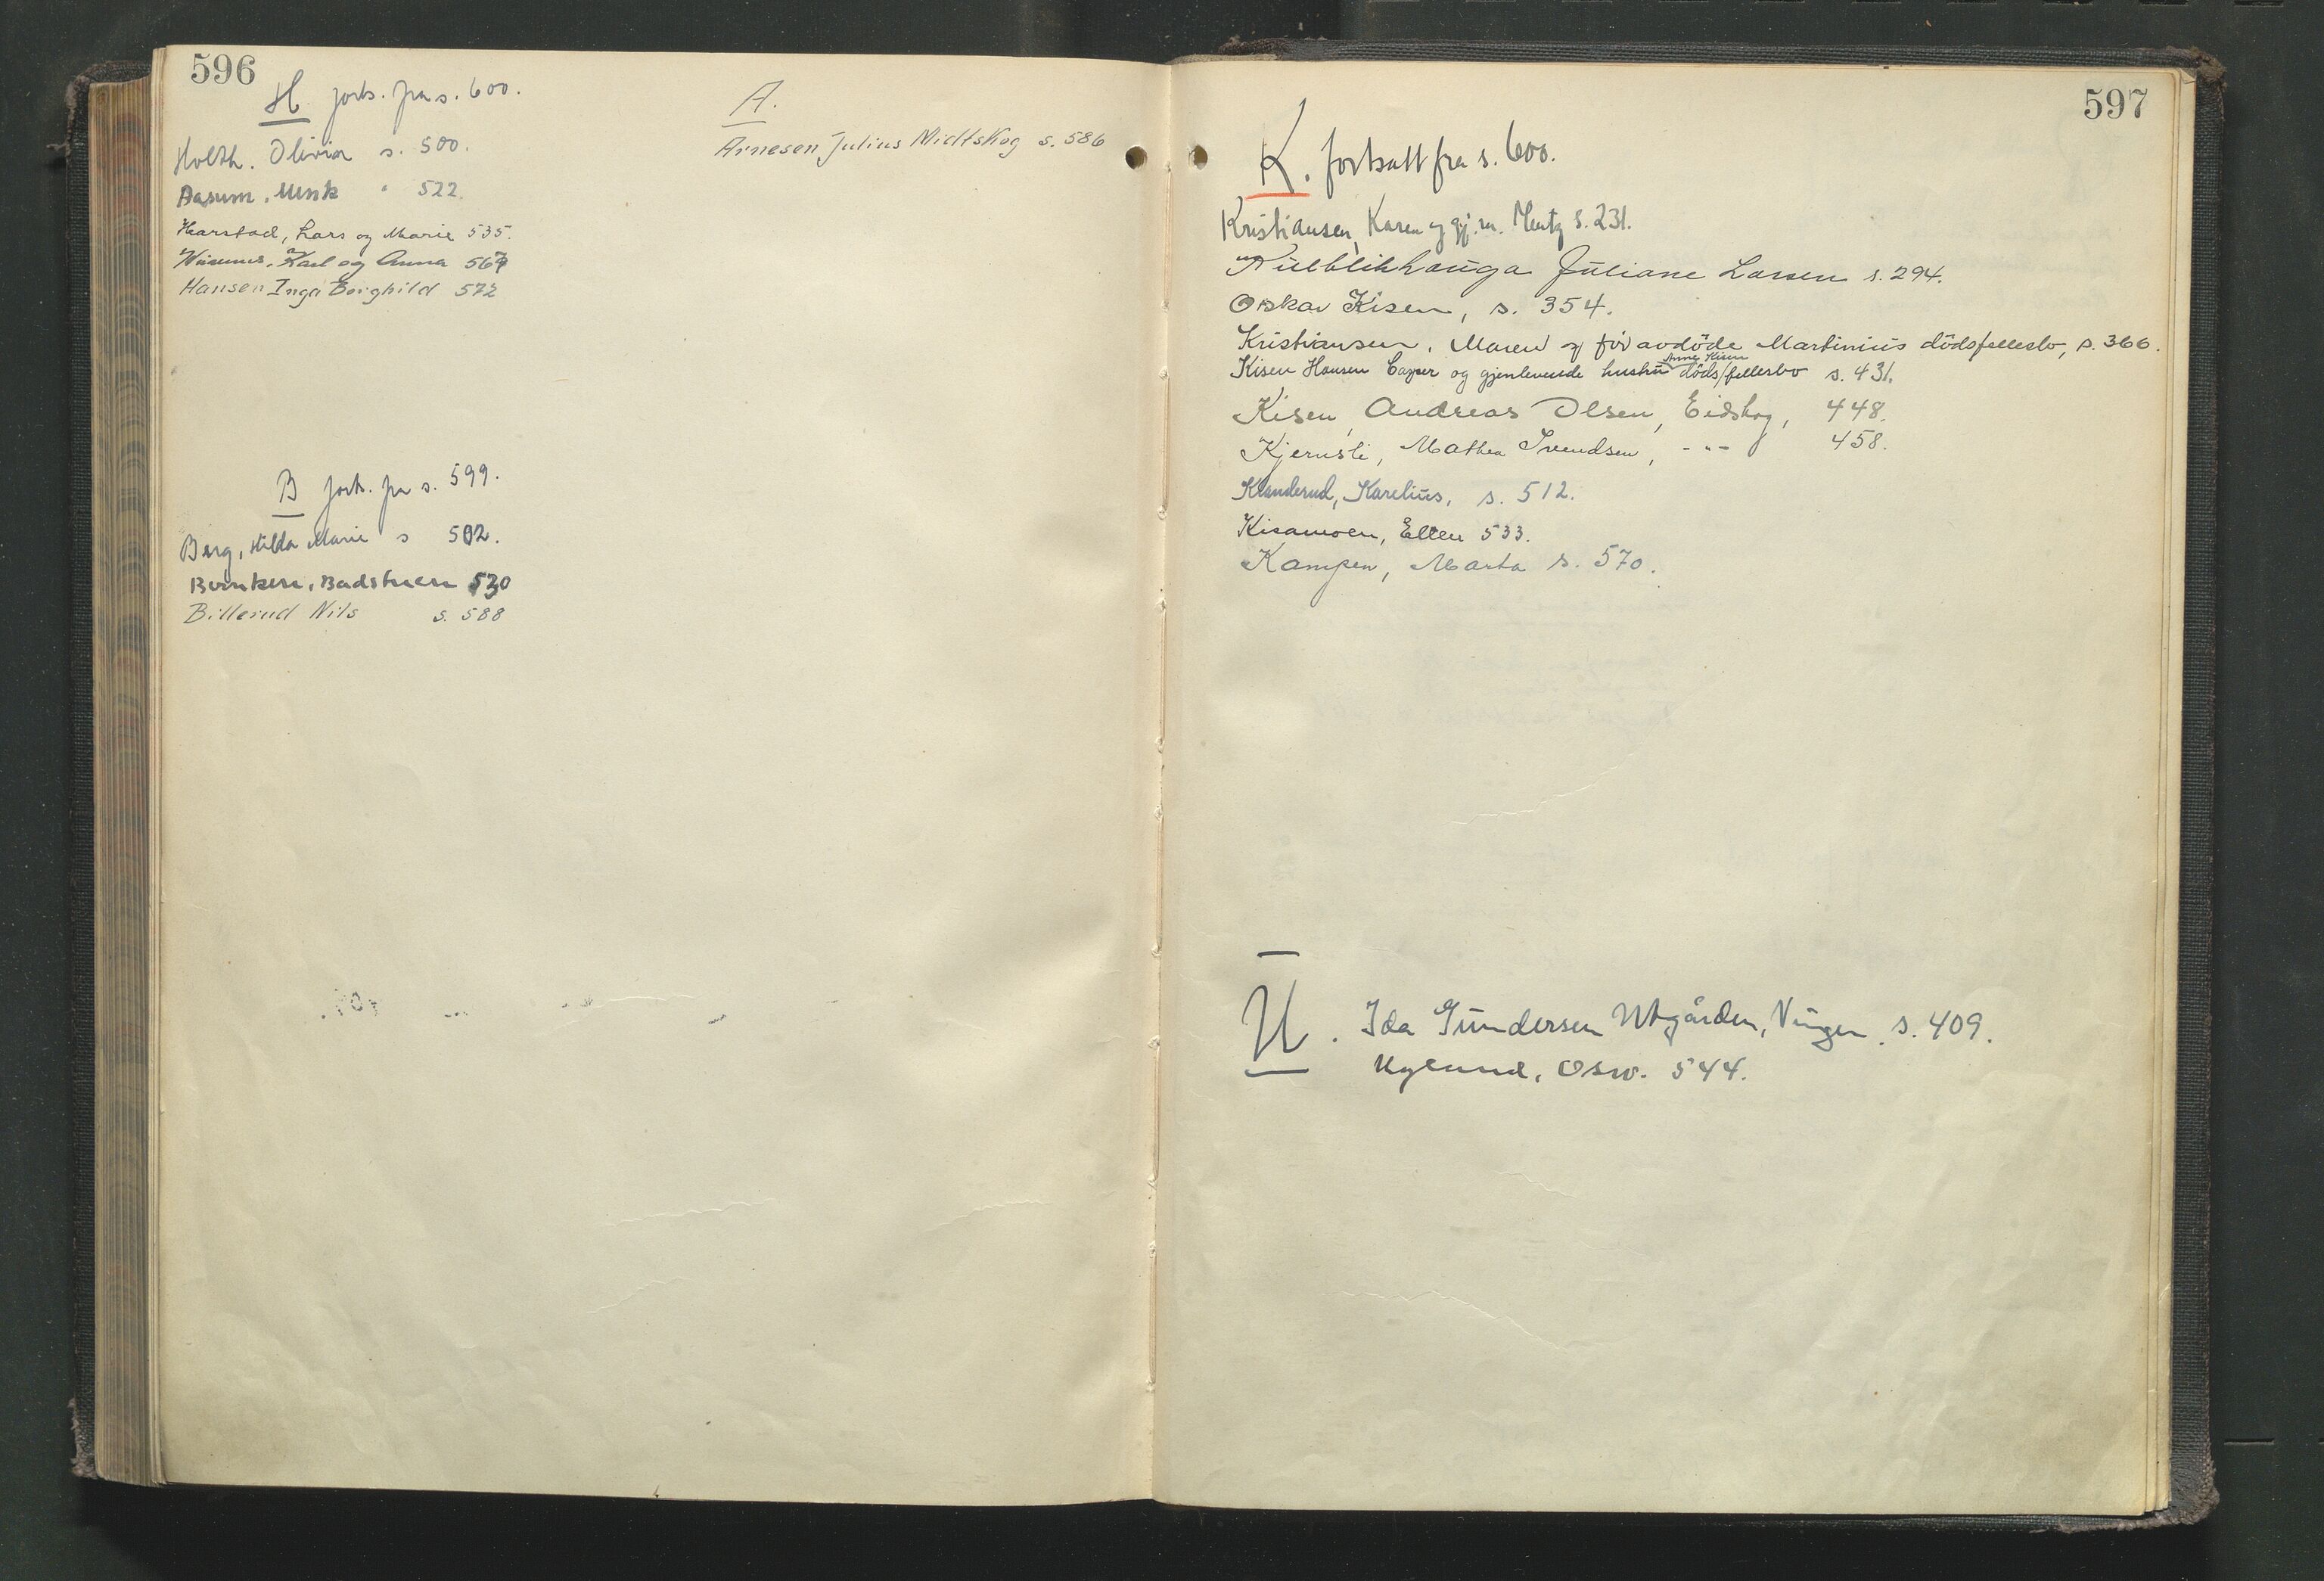 596
H forts. fra s. 600.
Holth. Olivia s. 500.
522.
Harstad, Lars og Marie 535.
Karl og Anna 567
Hansen Inga Borghild 572
B forts. fra s. 599.
Berg, Hilda Marie s 502.
Badstuen 530
Billerud Nils s. 588
A.
Arnesen Julius Midtskog s. 586
597
K. fortsatt fra s. 600.
Kristiansen, Karen og gj. m. Mentz s. 231.
Juliane Larsen s. 294.
Oskar Kisen, s. 354.
Kristiansen, Maren og før avdøde Martinius dödsfellesbo, s. 366.
Kisen Hansen Casper og gjenlevende hustru Anne Kisen döds/fellesbo s. 431.
Kisen, Andreas Olsen, Eidskog, 448.
Kjernsli, Mathea Svendsen, -"- 458.
Klanderud, Karelius, s. 512.
Kisamoen, Ellen 533.
Kampen, Marta s. 570.
U. Ida Gundersen Utgården, Vinger s. 409.
Uglund, Osw. 544.